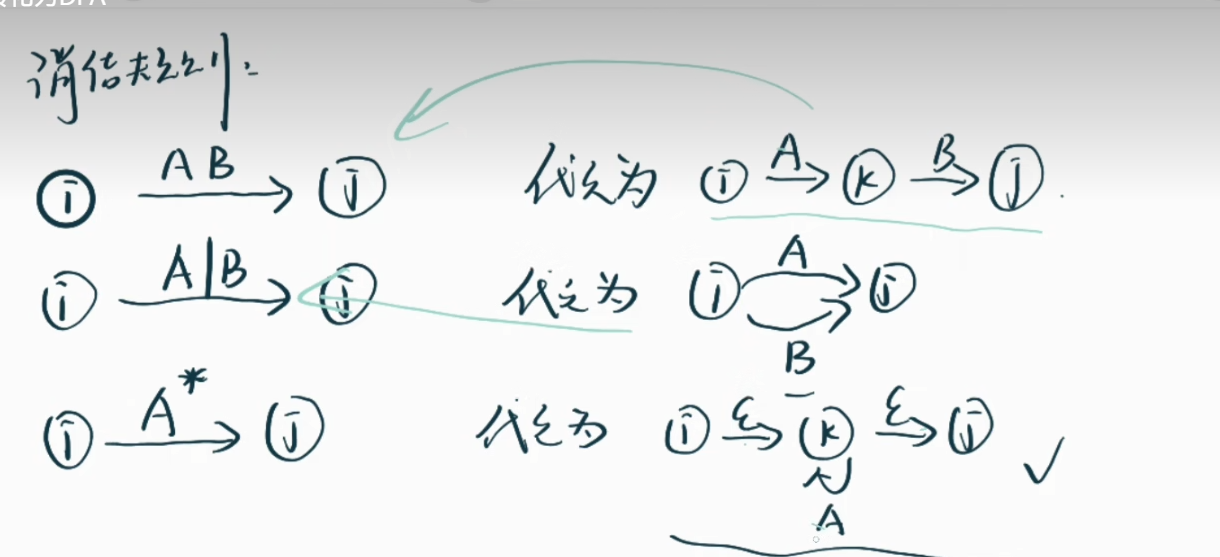 消结规则：
i AB j 代之为 i A k B j .
i A|B j 代之为 i A B j
i A* j 代之为 i ε k ε j A